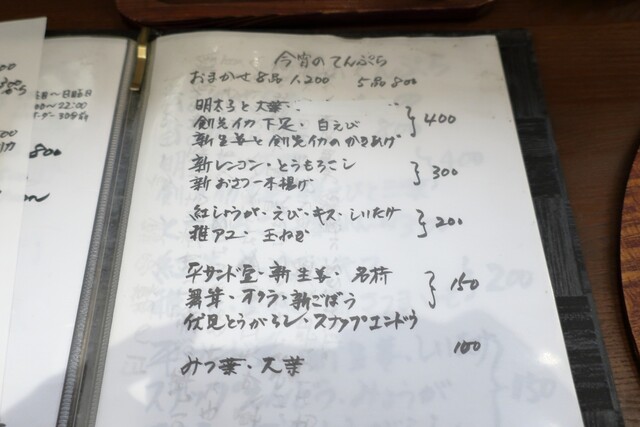 今宵のてんぷら
おまかせ8品 1,200 5品 800
明太子と大葉
剣先イカ下足・白えび
新生姜と剣先イカのかきあげ
400
新レンコン・とうもろこし
新おさつ一本揚げ
300
紅しょうが・えび・キス・しいたけ
稚アユ・玉ねぎ
200
平サンド豆・新生姜・茗荷
舞茸・オクラ・新ごぼう
伏見とうがらし・スナップエンドウ
150
みつ葉・大葉
100
800